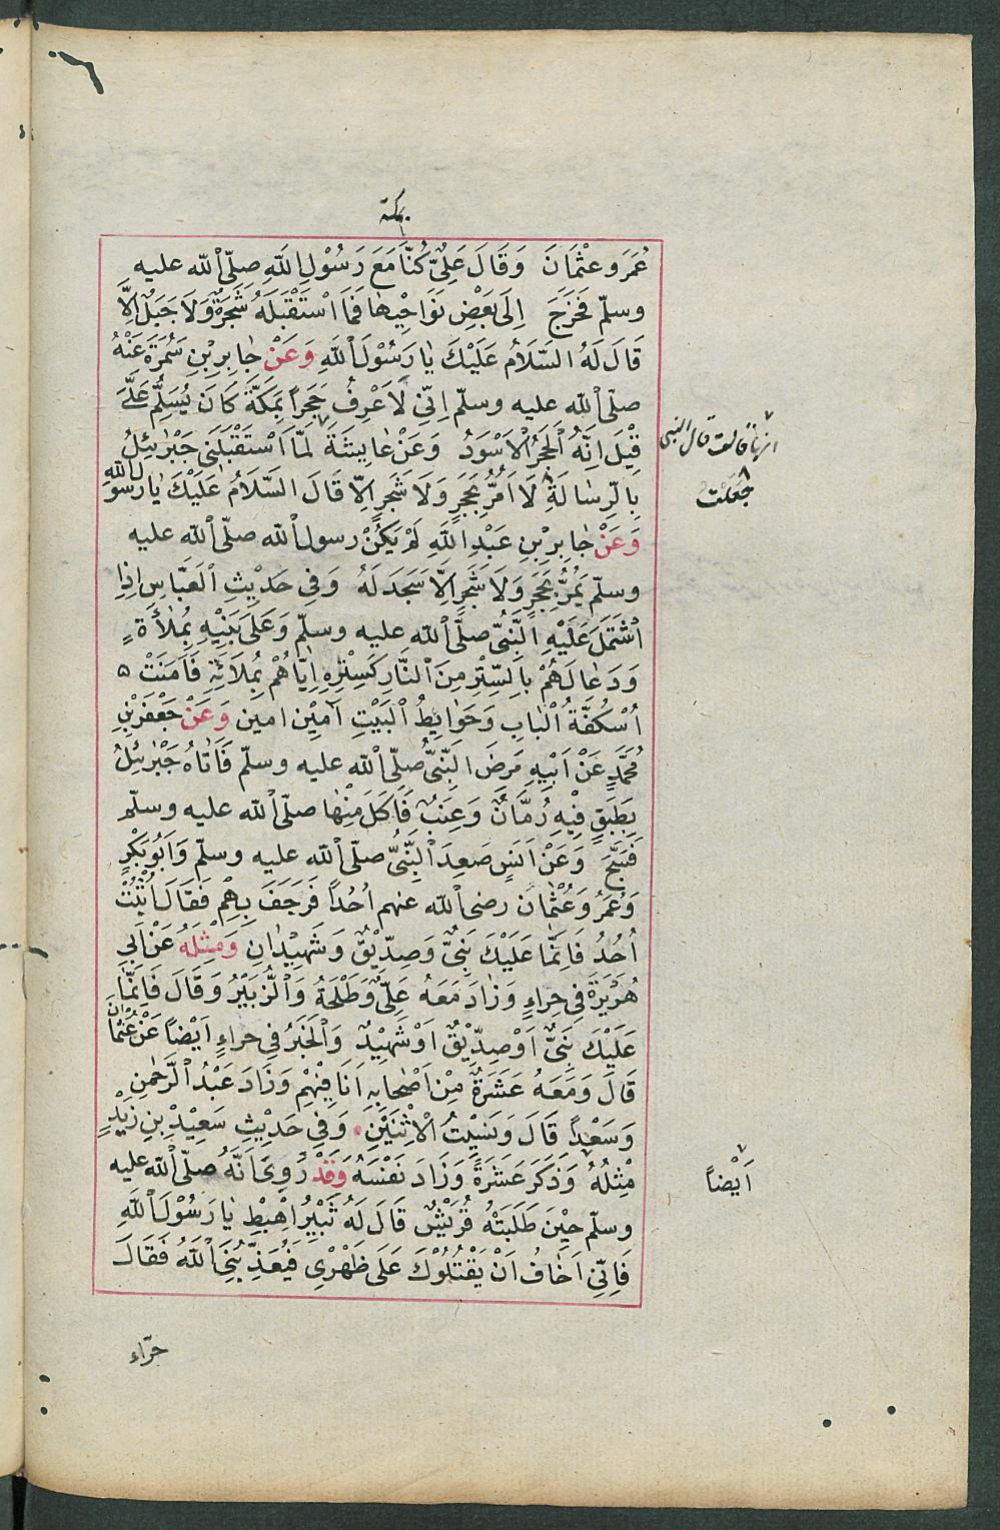 بمكة
عُمَرَ وعثْمَانَ وَقَالَ عَلِيٌّ كُنَّا مَعَ رَسُوْلِ اللّٰهِ صلّى اللّٰه عليه
وسلّم فَخَرَجَ اِلَى بَعْضِ نَوَاحِيْهَا فَمَا اسْتَقْبَلَهُ شَجَرَةٌ وَلَا جَبَلٌ اِلَّا
قَالَ لَهُ السَّلَامُ عَلَيْكَ يَا رَسُوْلَ اللّٰهِ وَعَنْ جَابِرِ بْنِ سَمُرَةَ عَنْهُ
صلّى اللّٰه عليه وسلّم اِنِّي لَاَعْرِفُ حَجَراً بِمَكَّةَ كَانَ يُسَلِّمُ عَلَيَّ
قِيْلَ اِنَّهُ الْحَجَرُ الْاَسْوَدُ وَعَنْ عَايِشَةَ لَمَّا اسْتَقْبَلَنِي جَبْرَئِيْلُ
انها قالت قال النبي
بِالرِّسَالَةِ لَا اَمُرُّ بِحَجَرٍ وَلَا شَجَرٍ اِلَّا قَالَ السَّلَامُ عَلَيْكَ يَا رَسُوْلَ اللّٰهِ
جَعَلْتُ
وَعَنْ جَابِرِ بْنِ عَبْدِ اللّٰهِ لَمْ يَكُنْ رسول اللّٰه صلّى اللّٰه عليه
وسلّم يَمُرُّ بِحَجَرٍ وَلَا شَجَرٍ اِلَّا سَجَدَ لَهُ وَفِي حَدِيْثِ الْعَبَّاسِ اِذَا
اشْتَمَلَ عَلَيْهِ النَّبِيُّ صلّى اللّٰه عليه وسلّم وَعَلَى بَنِيْهِ بِمُلَاءَةٍ
وَدَعَا لَهُمْ بِالسِّتْرِ مِنَ النَّارِ كَسِتْرِهِ اِيَّاهُمْ بِمُلَاءَتِهِ فَاَمَنَتْ ۵
اُسْكُفَّةُ الْبَابِ وَحَوَايِطُ الْبَيْتِ آمِيْن امين وَعَنْ جَعْفَرِ بْنِ
مُحَمَّدٍ عَنْ اَبِيْهِ مَرِضَ النَّبِيُّ صلّى اللّٰه عليه وسلّم فَاَتَاهُ جَبْرَئِيْلُ
بِطَبَقٍ فِيْهِ رُمَّانٌ وَعِنَبٌ فَاَكَلَ مِنْهَا صلّى اللّٰه عليه وسلّم
فَسَبَّحَ وَعَنْ اَنَسٍ صَعِدَ النَّبِيُّ صلّى اللّٰه عليه وسلّم وَاَبُوْ بَكْرٍ
وَعُمَرُ وَعُثْمَان رضى اللّٰه عنهم اُحُداً فَرَجَفَ بِهِمْ فَقَالَ اثْبُتْ
اُحُدُ فَاِنَّمَا عَلَيْكَ نَبِيٌّ وَصِدِّيْقٌ وَشَهِيْدَانِ وَمِثْلَهُ عَنْ اَبِي
هُرَيْرَةَ فِي حِرَاءٍ وَزَادَ مَعَهُ عَلِيٌّ وَطَلْحَةُ وَالزُّبَيْرُ وَقَالَ فَاِنَّمَا
عَلَيْكَ نَبِيٌّ اَوْ صِدِّيْقٌ اَوْ شَهِيْدٌ وَالْخَبَرُ فِي حراءٍ اَيْضاً عَنْ عُثْمَانَ
قَالَ وَمَعَهُ عَشَرَةٌ مِنْ اَصْحَابِهِ اَنَا فِيْهِمْ وَزَادَ عَبْدُ الرَّحْمٰنِ
وَسَعْدٌ قَالَ وَنَسِيْتُ الْاِثْنَيْنِ وَفِي حَدِيْثِ سَعِيْدِ بنِ زَيْدٍ
مِثْلُهُ وَذَكَرَ عَشَرَةً وَزَادَ نَفْسَهُ وَقَدْ رُوِيَ اَنَّهُ صلّى اللّٰه عليه
اَيْضاً
وسلّم حِيْنَ طَلَبَتْهُ قُرَيْشٌ قَالَ لَهُ ثَبِيْرُ اهْبِطْ يَا رَسُوْلَ اللّٰهِ
فَاِنِّي اَخَافُ اَنْ يَقْتُلُوْكَ عَلَى ظَهْرِي فَيُعَذِّبَنِي اللّٰهُ فَقَالَ
حرّاء